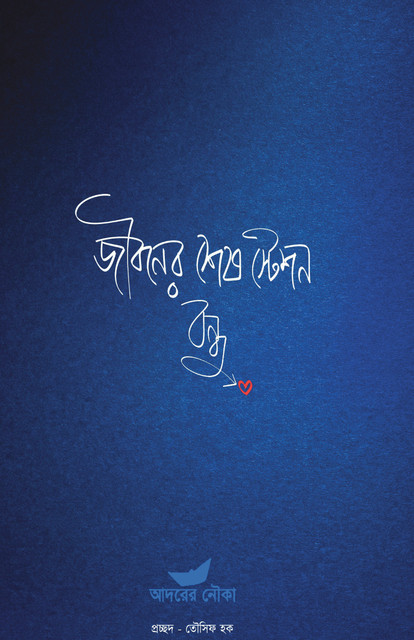 জীবনের শেষ স্টেশন
বন্ধু
আদরের নৌকা
প্রচ্ছদ - তৌসিফ হক